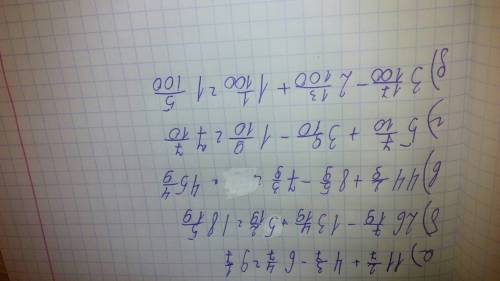 а) 11 2/7 + 4 3/7 - 6 4/7 = 9 1/7
б) 26 7/19 - 13 4/19 + 5 2/19 = 18 5/19
в) 44 2/9 + 8 5/9 - 7 3/9 = 45 4/9
г) 5 7/10 + 3 9/10 - 1 9/10 = 7 7/10
д) 3 17/100 - 2 13/100 + 1 1/100 = 1 5/100